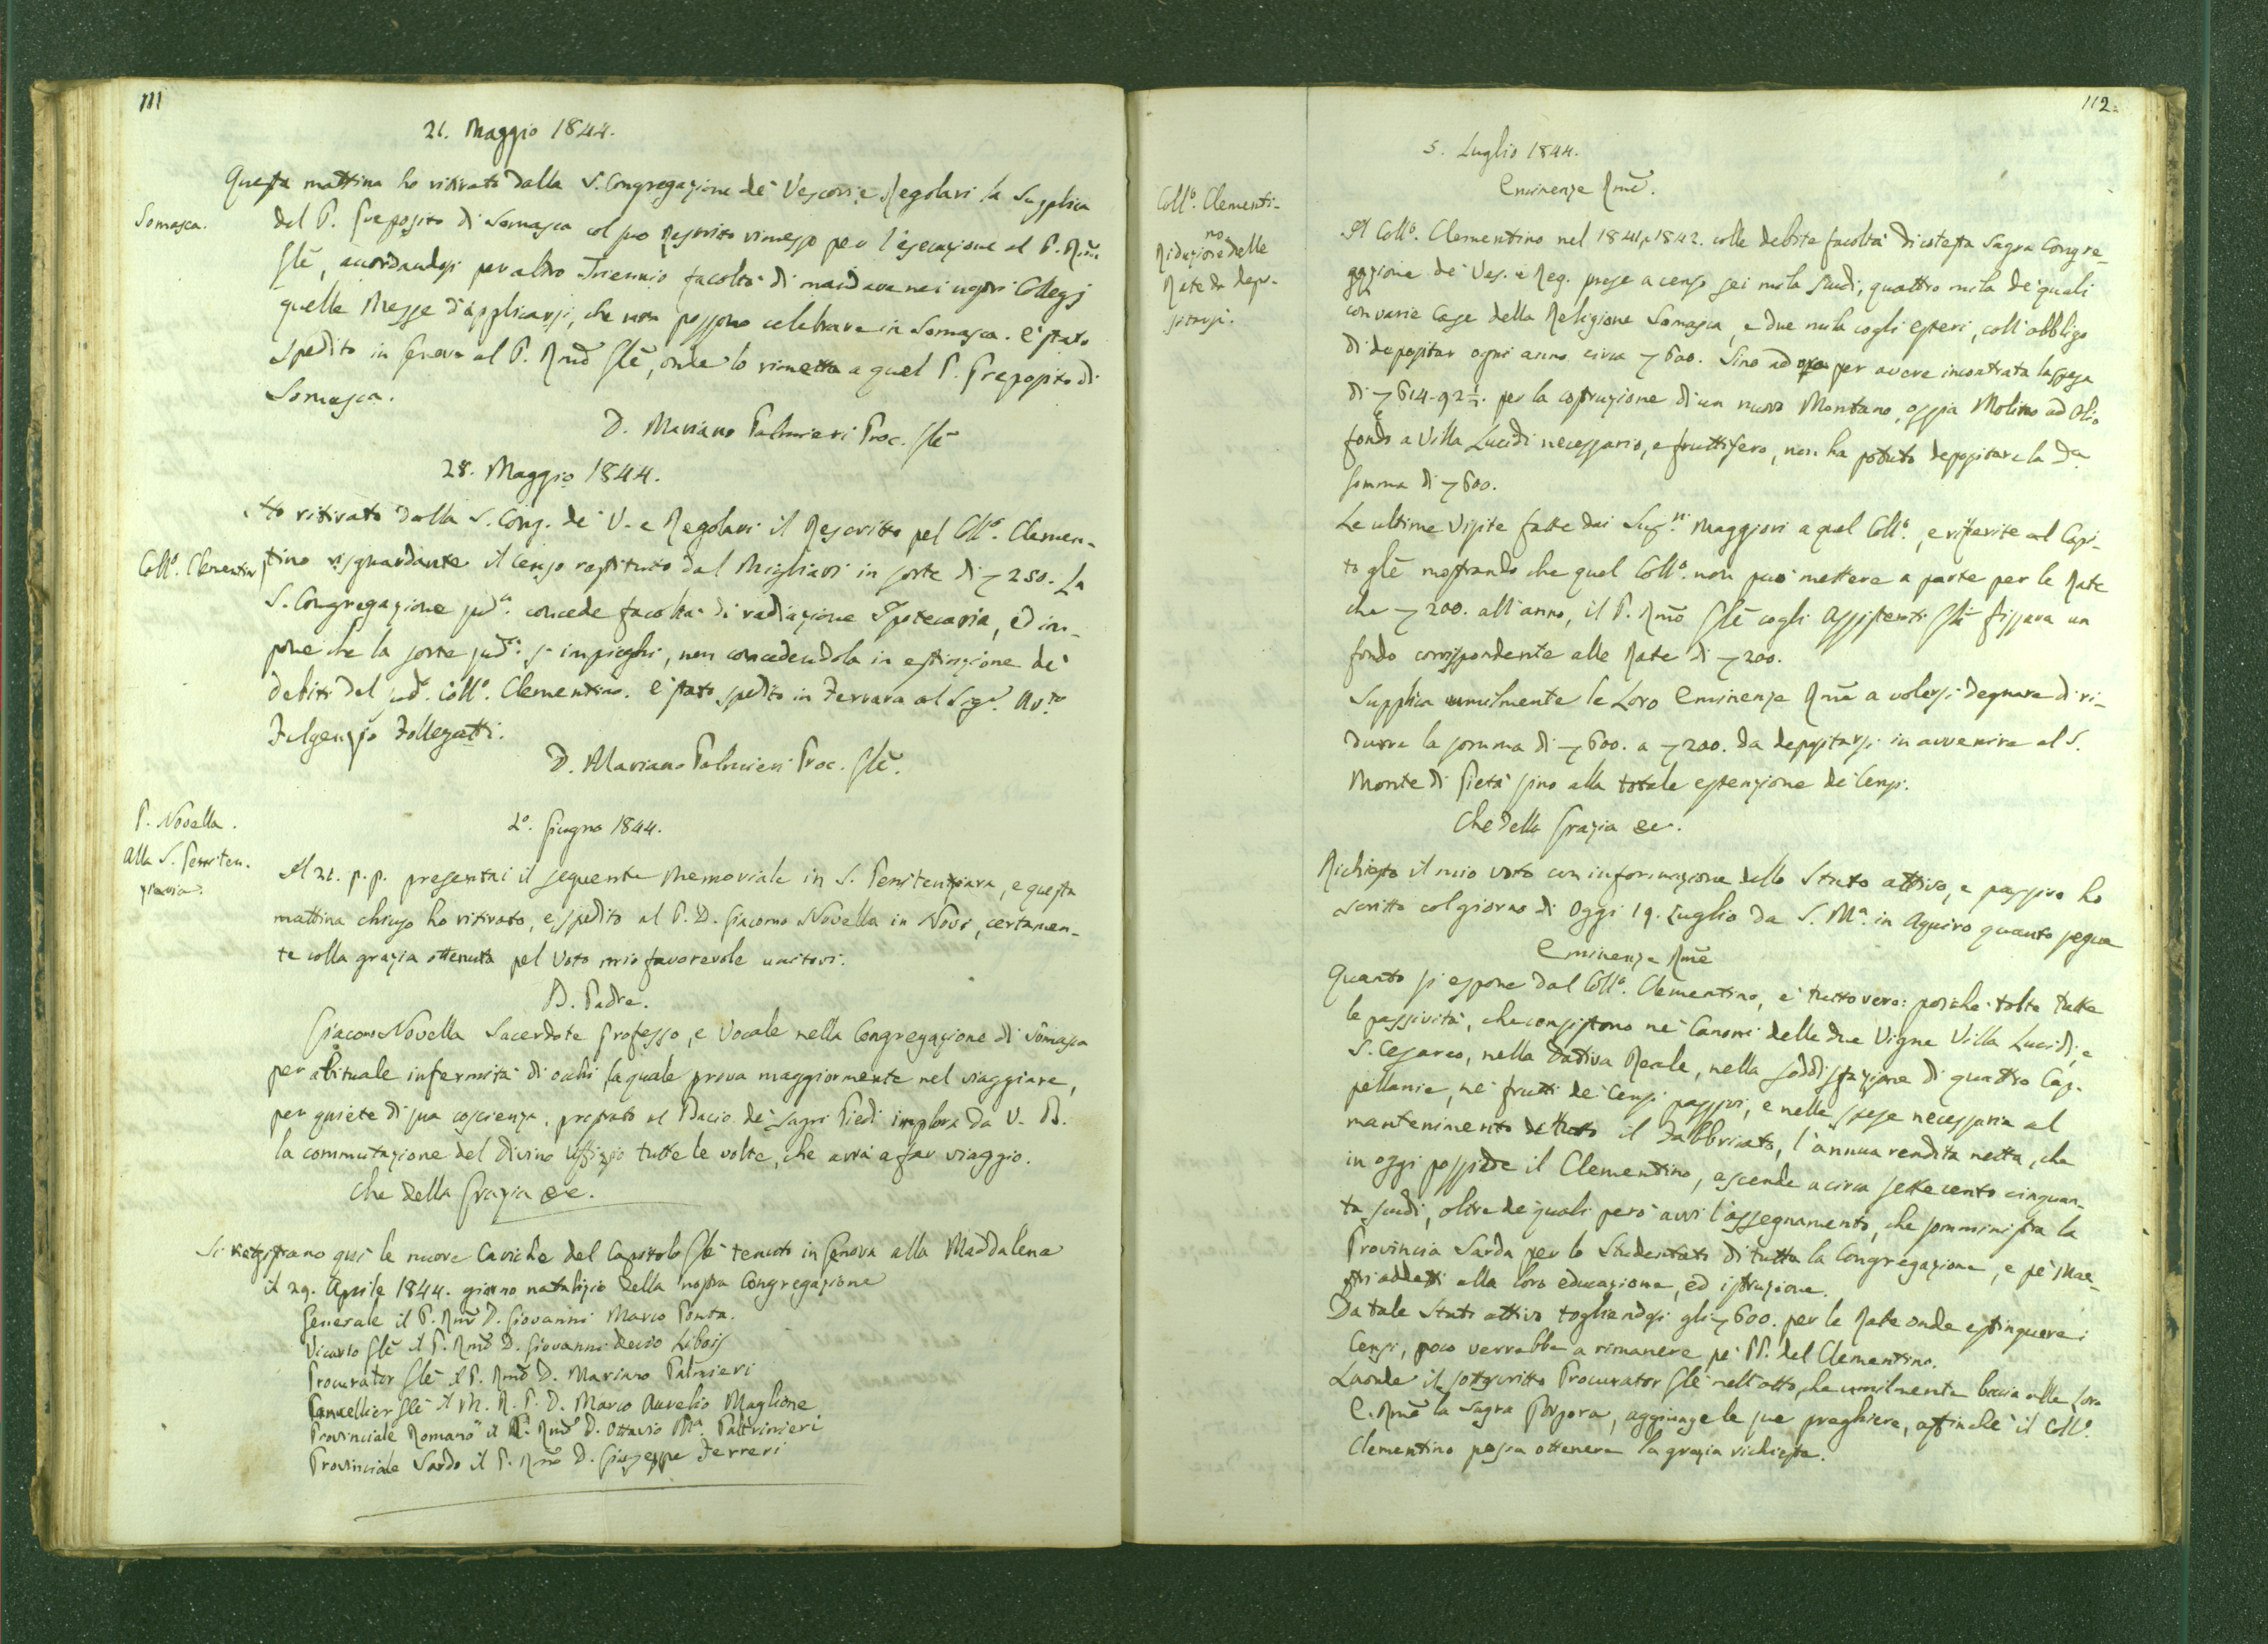 111
21. Maggio 1844.
Questa mattina ho ritirato dalla S. Congregazione de' Vescovi e Regolari la Supplica
Somasca.
del P. Preposito di Somasca col suo Rescritto rimesso per l'esecuzione al P. Rmo
Gle, accordandosi per altro Triennio facoltà di mandare nei nostri Collegj
quelle Messe d'applicarsi, che non possono celebrare in Somasca. È stato
spedito in Genova al P. Rmo Gle, onde lo rimetta a quel P. Preposito di
Somasca.
D. Mariano Palmieri Proc. Gle
28. Maggio 1844.
Ho ritirato dalla S. Cong. de' V. e Regolari il Rescritto pel Collo. Clemen-
Collo. Clementino
tino risguardante il Censo restituito dal Migliari in sorte di 250. La
S. Congregazione sudª. concede facoltà di radiazione Ipotecaria, ed im-
pone che la sorte sudª. si impieghi, non concedendola in estinzione de'
debiti del sud. Collo. Clementino. È stato spedito in Ferrara al Sigr. Avto
Fulgenzio Follegatti.
D. Mariano Palmieri Proc. Gle.
P. Novella.
alla S. Peniten-
zieria.
2º. Giugno 1844.
Il 21. p.p. presentai il seguente Memoriale in S. Penitenziaria, e questa
mattina chiuso ho ritirato, e spedito al P. D. Giacomo Novella in Novi, certamen-
te colla grazia ottenuta pel Voto mio favorevole unitovi.
B. Padre.
Giacomo Novella Sacerdote Professo, e Vocale nella Congregazione di Somasca
per abituale infermità di occhi, la quale prova maggiormente nel viaggiare,
per quiete di sua coscienza, prostrato al Bacio de' sagri Piedi implora da V. B.
la commutazione del Divino Uffizio tutte le volte, che avrà a far viaggio.
Che della Grazia &c.
Si registrano qui le nuove Cariche del Capitolo Gle tenuto in Genova alla Maddalena
il 29. Aprile 1844. giorno natalizio della nostra Congregazione
Generale il P. Rmo D. Giovanni Marco Ponta.
Vicario Gle il P. Rmo D. Giovanni Decio Libois
Procurator Gle il P. Rmo D. Mariano Palmieri
Cancellier Gle il M. R. P. D. Marco Aurelio Maglione
Provinciale Romano il P. Rmo D. Ottavio Mª. Paltrinieri
Provinciale Sardo il P. Rmo D. Giuseppe Ferreri
112.
5. Luglio 1844.
Eminenze Rme.
Collo. Clementi-
no
Riduzione delle
Rate da depo-
sitarsi.
Il Collo. Clementino nel 1841, e 1842. colle debite facoltà di cotesta Sagra Congre-
gazione de' Ves. e Reg. prese a censo sei mila scudi, quattro mila de' quali
con varie Case della Religione Somasca, e due mila cogli esteri, coll'obbligo
di depositar ogni anno circa 600. Sino ad ora per avere incontrata la spesa
di 614-92½. per la costruzione di un nuovo Montano, ossia Molino ad Olio
fondo a Villa Lucidi necessario, e fruttifero, non ha potuto depositare la da
somma di 600.
Le ultime Visite fatte dai Supri. Maggiori a quel Collo., e riferite al Capi-
to gle mostrando che quel Collo. non può mettere a parte per le Rate
che 200. all'anno, il P. Rmo Gle cogli Assistenti Gli fissava un
fondo corrispondente alle Rate di 200.
Supplica umilmente le Loro Eminenze Rme a volersi degnare di ri-
durre la somma di 600. a 200. da depositarsi in avvenire al S.
Monte di Pietà sino alla totale estenzione de' Censi.
Che della Grazia &c.
Richiesto il mio voto con informazione dello Stato attivo, e passivo ho
scritto col giorno di Oggi 19. Luglio da S. Mª. in Aquiro quanto segue
Eminenze Rme
Quanto si espone dal Collo. Clementino, è tutto vero: poichè tolte tutte
le passività, che consistono ne' Canoni delle due Vigne Villa Lucidi, e
S. Cesareo, nella Dativa Reale, nella soddisfazione di quattro Cap-
pellanie, ne' frutti de' Censi passivi, e nelle spese necessarie al
mantenimento di tutto il Fabbricato, l'annua rendita netta, che
in oggi possiede il Clementino, ascende a circa settecento cinquan-
ta scudi, oltre de' quali però avvi l'assegnamento, che somministra la
Provincia Sarda per lo Studentato di tutta la Congregazione, e pe' Mae-
stri addetti alla loro educazione, ed istruzione.
Da tale Stato attivo togliendosi gli 600. per le Rate onde estinguere i
Censi, poco verrebbe a rimanere pe' PP. del Clementino.
Laonde il sottoscritto Procurator Gle nell'atto, che umilmente bacia alle Loro
E. Rme la Sagra Porpora, aggiunge le sue preghiere, affinchè il Collo.
Clementino possa ottenere la grazia richiesta.